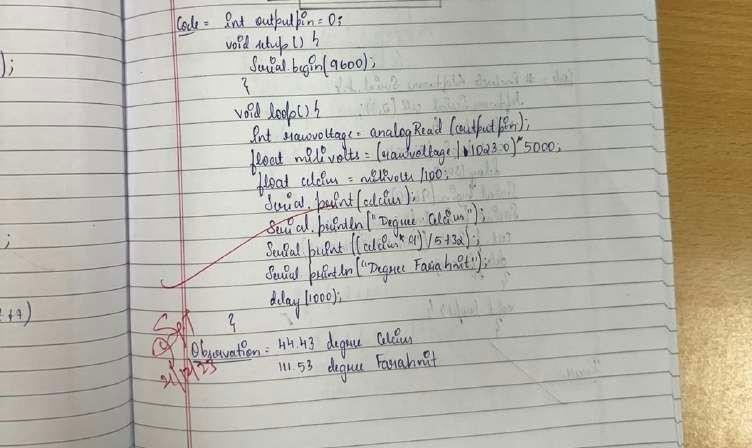 );
;
Code = int outputpin = 0;
void setup() {
Serial.begin(9600);
}
void loop() {
int rawvoltage = analogRead (outputpin);
float milivolts = (rawvoltage / 1023.0) * 5000;
float celcius = milivolts / 100;
Serial.print (celcius);
Serial.println ("Degree Celcius");
Serial.print ((celcius * 9) / 5 + 32);
Serial println ("Degree Farahnit");
delay (1000);
}
Observation = 44.43 degree Celcius
111.53 degree Farahnit